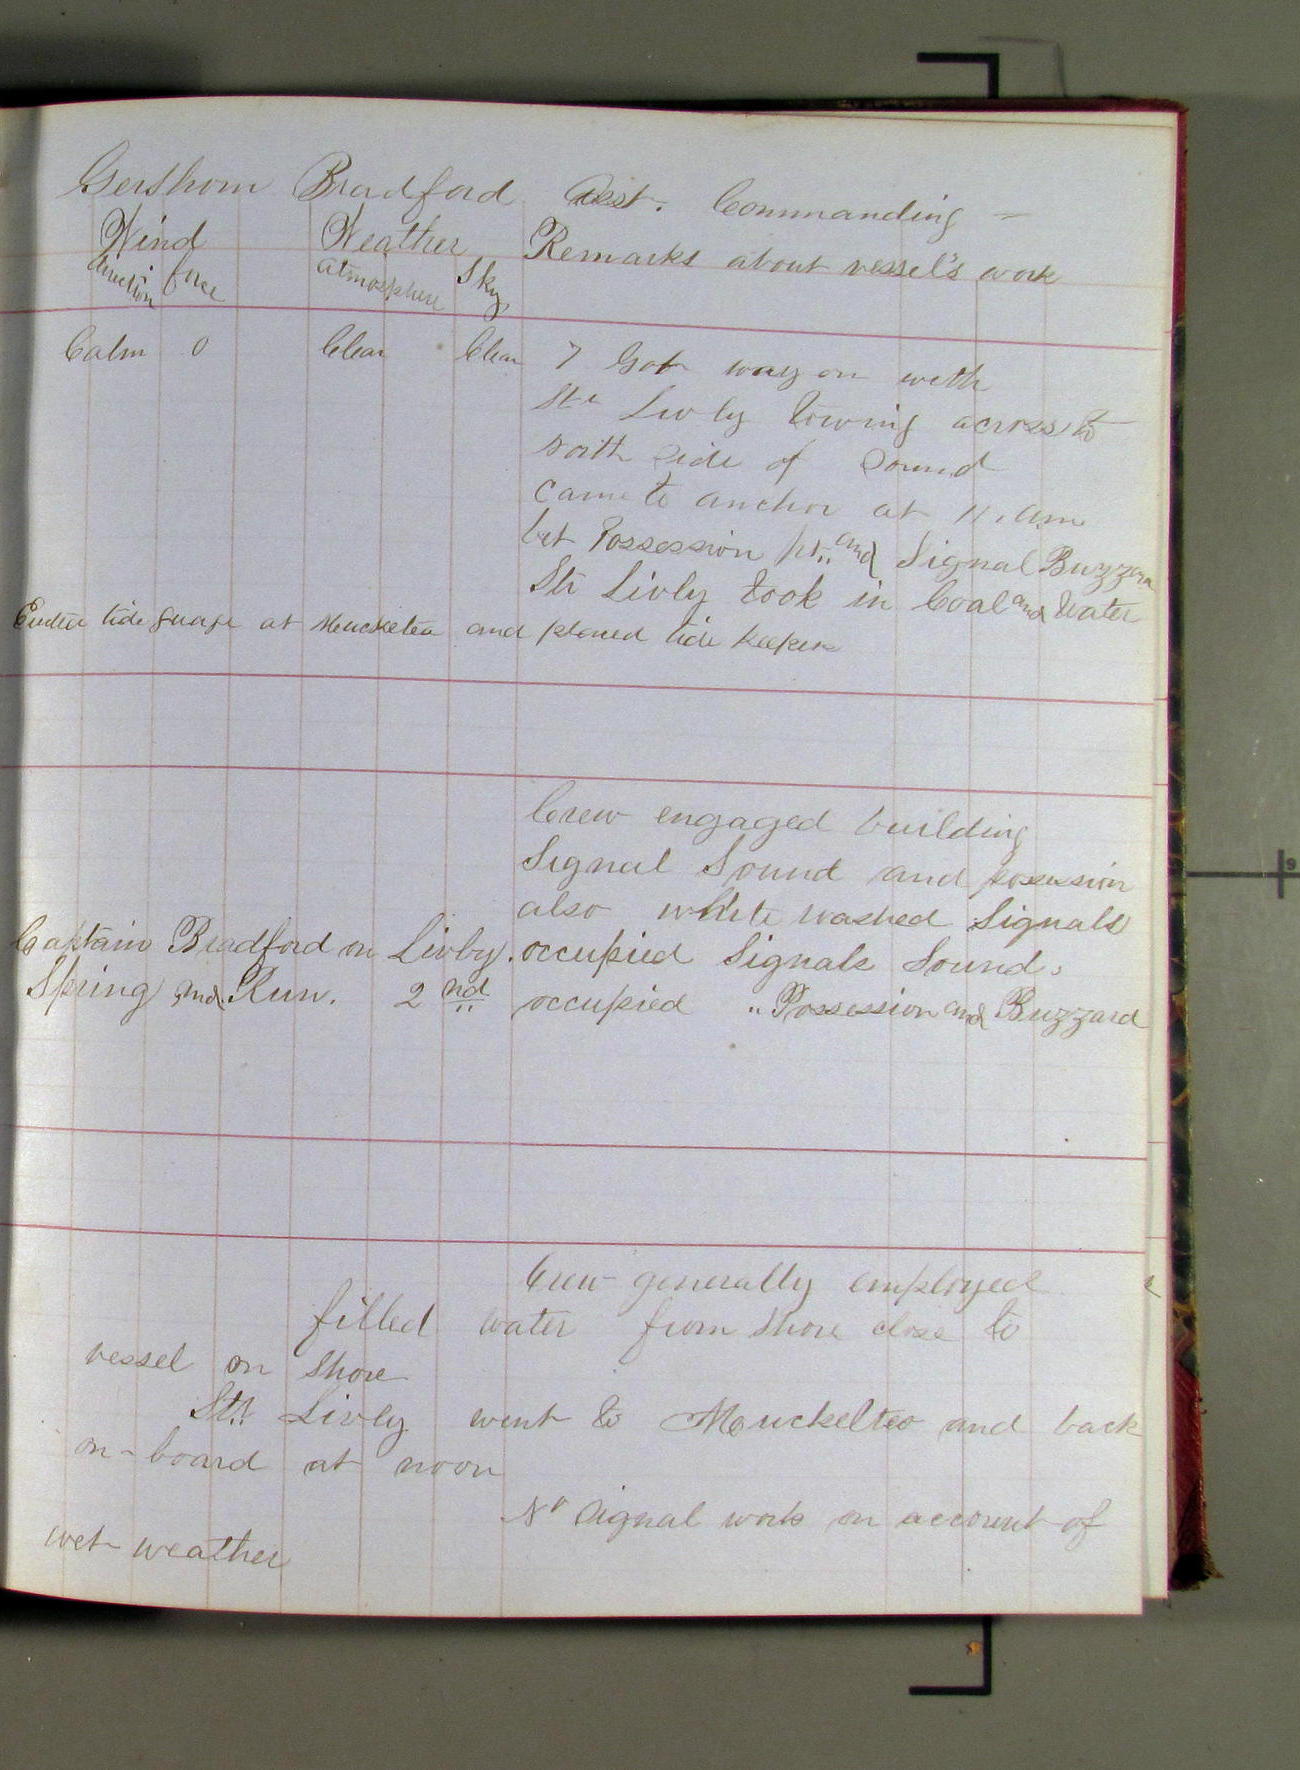 Gershom Bradford Asst. Commanding —
Wind Weather Remarks about vessel's work
direction force atmosphere Sky
Calm 0 Clear Clear 7 Got way on with
Str Livly towing across to
north side of Sound
came to anchor at 11. am
bet Possession pt. and Signal Buzzard
Str Livly took in Coal and Water
tide guage at Muckelteo and placed tide keepers
Crew engaged building
Signal Sound and possession
also white washed Signals
Captain Bradford on Livly. occupied Signals Sound.
Spring and Run. 2nd occupied " Possession and Buzzard
Crew generally employed
filled water from shore close to
vessel on shore
Str Livly went to Muckelteo and back
on-board at noon
No Signal work on account of
wet weather